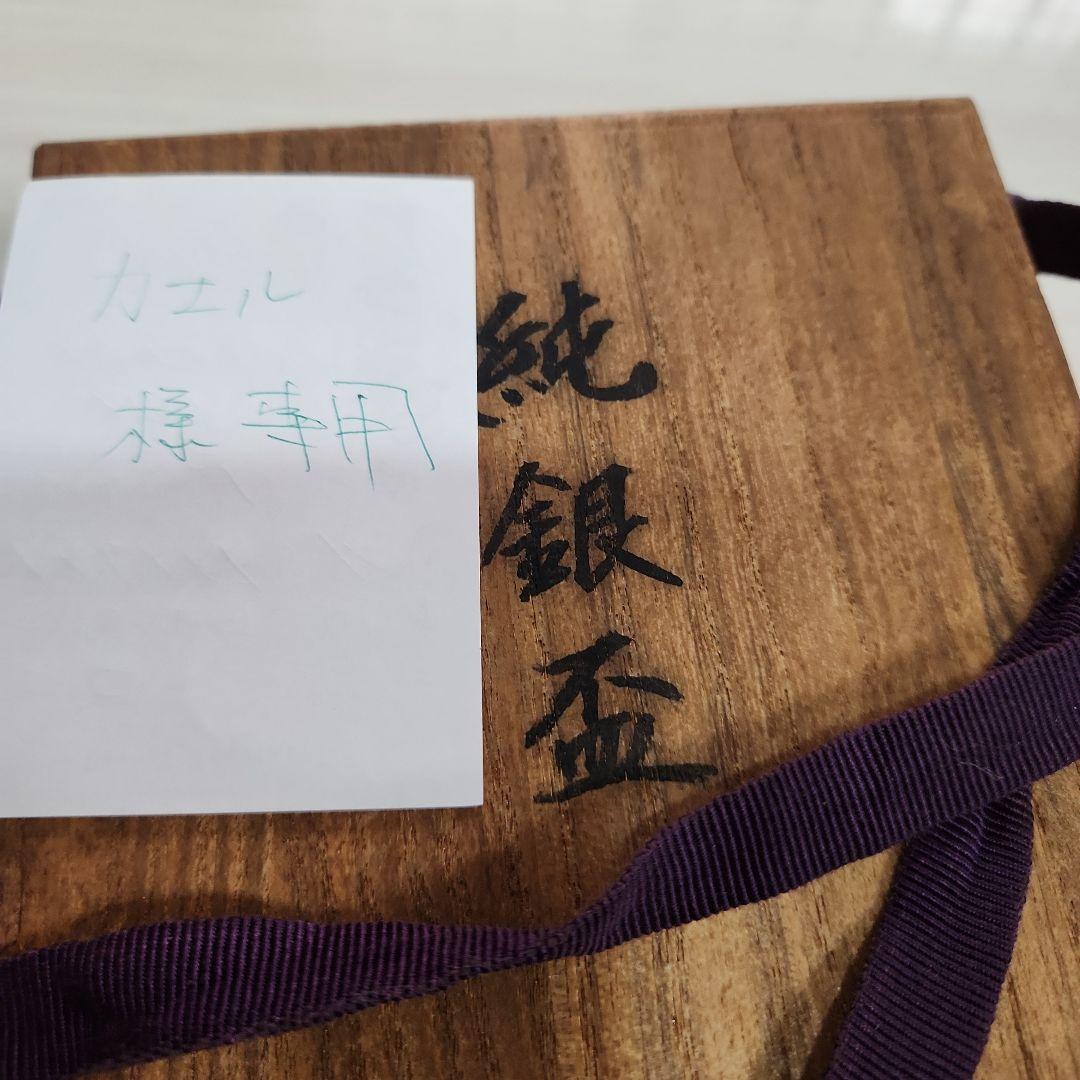 カエル
様専用
純銀盃